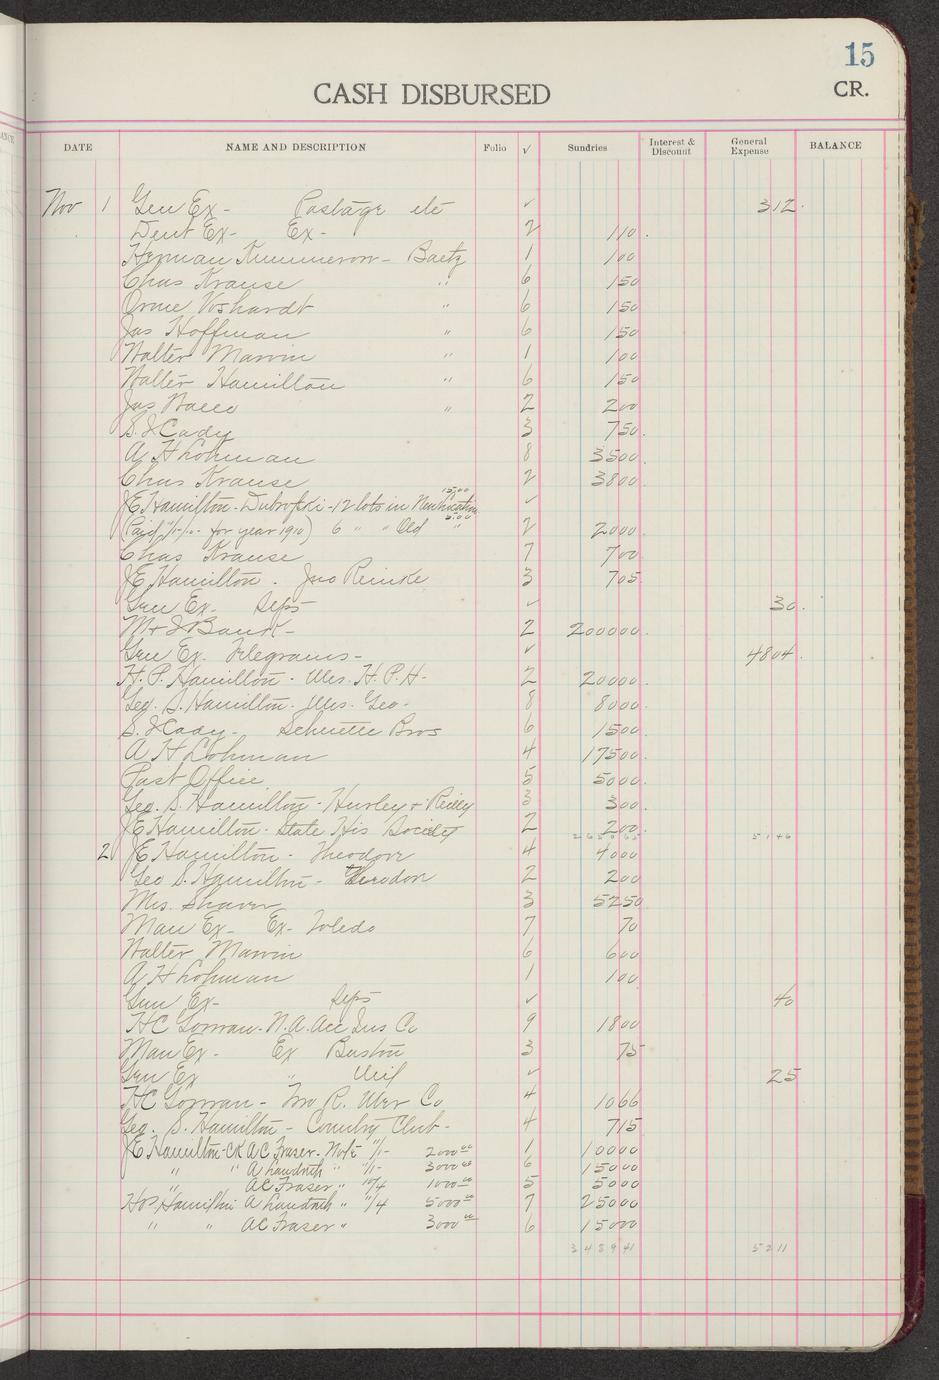 15
CASH DISBURSED
CR.
DATE NAME AND DESCRIPTION Folio ✓ Sundries Interest & Discount General Expense BALANCE
Nov 1 Gen Ex- Postage etc ✓ 312
Dent Ex- Ex- 2 110
Herman - 1 100
Chas Krause " 6 150
Orme Voshardt " 6 150
Jas Hoffman " 6 150
Walter Marvin " 1 100
Walter Hamilton " 6 150
Jas " 2 200
S. J Cady 3 750
A H Lohman 8 3500
Chas Krause 2 3800
15.00
JE Hamilton - - 12 lots in New ✓
5.00
(Paid for year 1910) 6 " " Old " 2 2000
Chas Krause 7 700
JE Hamilton - Jno Reinke 3 705
Gen Ex- ✓ 30
M & J Bank- 2 200000
Gen Ex. Telegrams- ✓ 4804
H. P. Hamilton - Mrs. H. P. H- 2 20000
Geo. S. Hamilton - Mrs. Geo- 8 8000
S. J Cady - Schuette Bros 6 1500
A H Lohman 4 17500
Post Office 5 5000
Geo. S. Hamilton - Hurley & Reilly 3 300
JE Hamilton - State His Society 2 200
5146
2 JE Hamilton - Theodore 4 4000
Geo S. Hamilton - 2 200
Mrs. Shaver 3 5250
Man Ex- Ex- Toledo 7 70
Walter Marvin 6 600
A H Lohman 1 100
Gen Ex- ✓ 40
HC Gorman - N.A. Acc Ins Co 9 1800
Man Ex- Ex Boston 3 75
Gen Ex " ✓ 25
HC Gorman - R. Co 4 1066
Geo. S. Hamilton - Country Club - 4 715
JE Hamilton - CK AC Fraser - Note 11/1- 2000 00 1 10000
" " A " 11/1- 3000 00 6 15000
" AC Fraser " 10/4 1000 00 5 5000
Hamilton A " 11/4 5000 00 7 25000
" " AC Fraser " 3000 00 6 15000
348941 5211